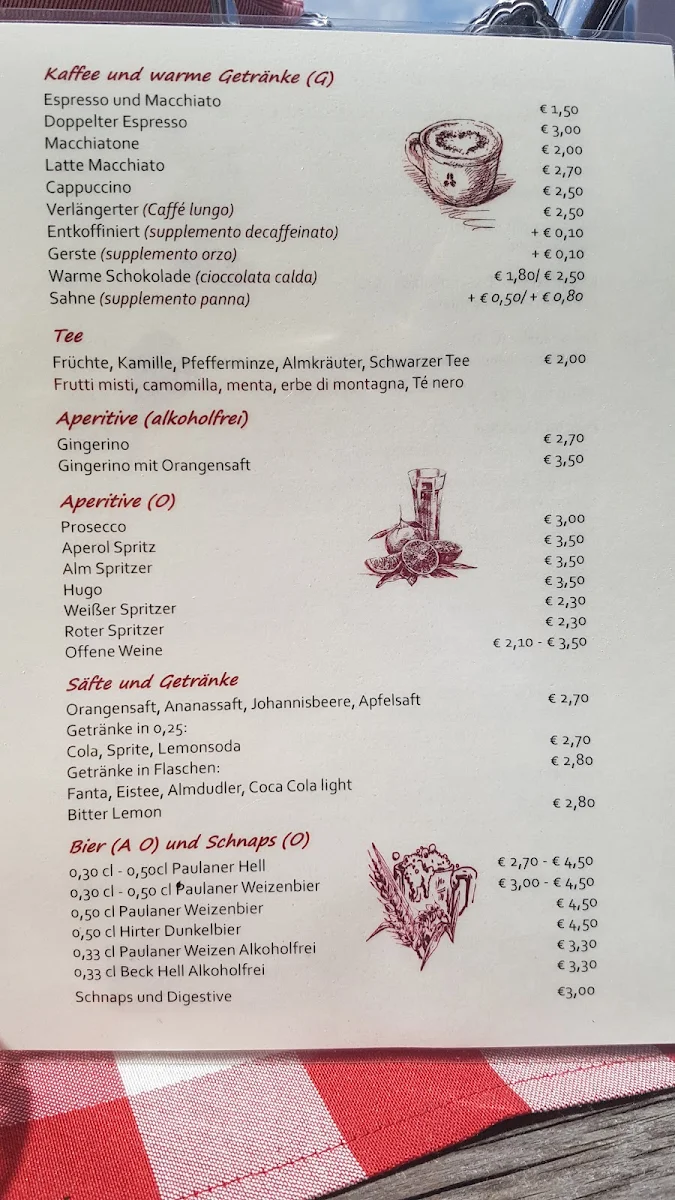 Kaffee und warme Getränke (G)
Espresso und Macchiato € 1,50
Doppelter Espresso € 3,00
Macchiatone € 2,00
Latte Macchiato € 2,70
Cappuccino € 2,50
Verlängerter (Caffé lungo) € 2,50
Entkoffiniert (supplemento decaffeinato) + € 0,10
Gerste (supplemento orzo) + € 0,10
Warme Schokolade (cioccolata calda) € 1,80/ € 2,50
Sahne (supplemento panna) + € 0,50/ + € 0,80
Tee
Früchte, Kamille, Pfefferminze, Almkräuter, Schwarzer Tee € 2,00
Frutti misti, camomilla, menta, erbe di montagna, Té nero
Aperitive (alkoholfrei)
Gingerino € 2,70
Gingerino mit Orangensaft € 3,50
Aperitive (O)
Prosecco € 3,00
Aperol Spritz € 3,50
Alm Spritzer € 3,50
Hugo € 3,50
Weißer Spritzer € 2,30
Roter Spritzer € 2,30
Offene Weine € 2,10 - € 3,50
Säfte und Getränke
Orangensaft, Ananassaft, Johannisbeere, Apfelsaft € 2,70
Getränke in 0,25:
Cola, Sprite, Lemonsoda € 2,70
Getränke in Flaschen: € 2,80
Fanta, Eistee, Almdudler, Coca Cola light
Bitter Lemon € 2,80
Bier (A O) und Schnaps (O)
0,30 cl - 0,50cl Paulaner Hell € 2,70 - € 4,50
0,30 cl - 0,50 cl Paulaner Weizenbier € 3,00 - € 4,50
0,50 cl Paulaner Weizenbier € 4,50
0,50 cl Hirter Dunkelbier € 4,50
0,33 cl Paulaner Weizen Alkoholfrei € 3,30
0,33 cl Beck Hell Alkoholfrei € 3,30
Schnaps und Digestive €3,00